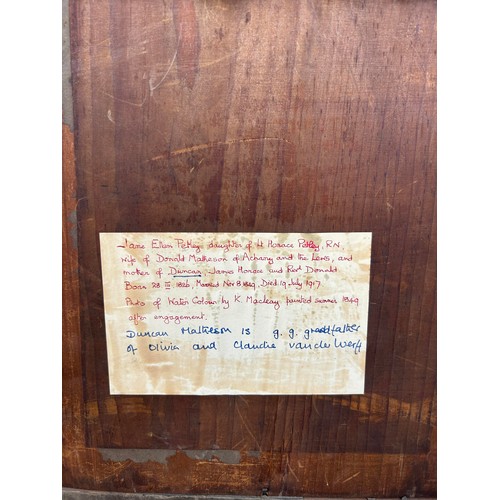 Jane Ellen Petley daughter of H. Horace Petley, R.N.
wife of Donald Matheson of Achany and the Lews, and
mother of Duncan, James Horace and Revd Donald.
Born 28 III 1826, Married Nov 8 1849, Died 19 July 1917
of Water Colour by K. Macleay painted summer 1849
after engagement.
Duncan Matheson is g. g. grandfather
of Olivia and Claudia van der Werff